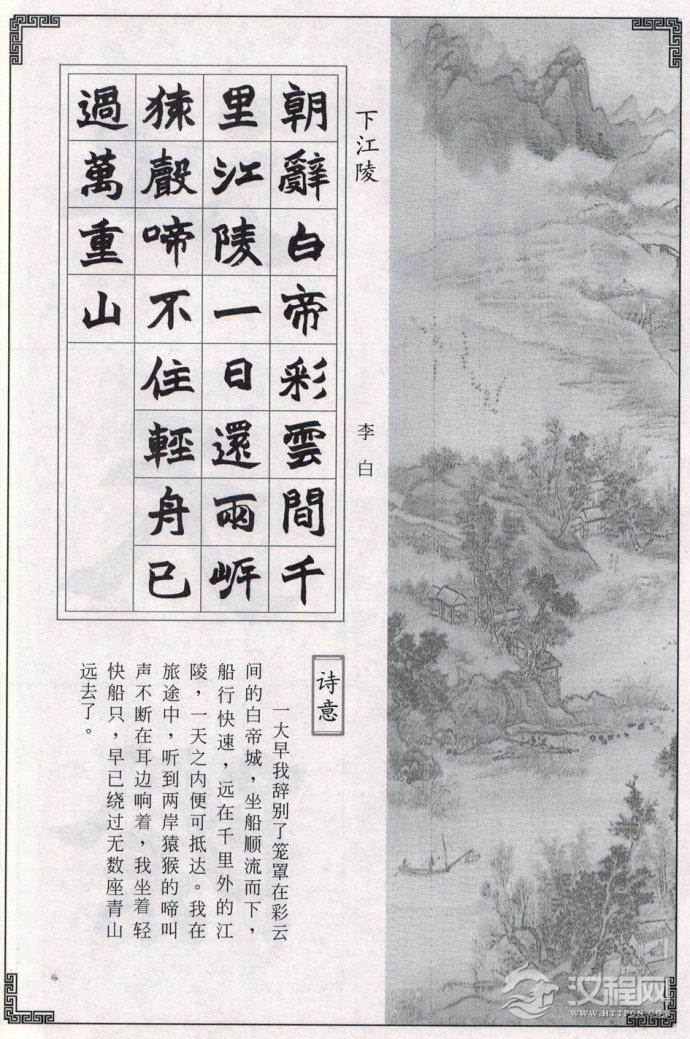 下江陵
李白
朝辭白帝彩雲間千
里江陵一日還兩岍
猿聲啼不住輕舟已
過萬重山
诗意
一大早我辞别了笼罩在彩云
间的白帝城，坐船顺流而下，
船行快速，远在千里外的江
陵，一天之内便可抵达。我在
旅途中，听到两岸猿猴的啼叫
声不断在耳边响着，我坐着轻
快船只，早已绕过无数座青山
远去了。
汉程网
WWW.HTTPCN.COM